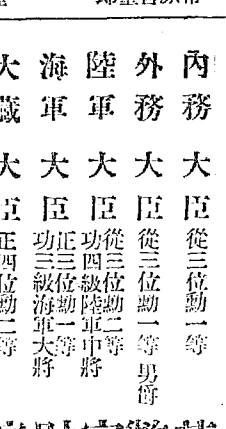 內務大臣 從三位勳一等
外務大臣 從三位勳一等男爵
陸軍大臣 從三位勳二等功四級陸軍中將
海軍大臣 正三位勳一等功三級海軍大將
大藏大臣 正四位勳二等